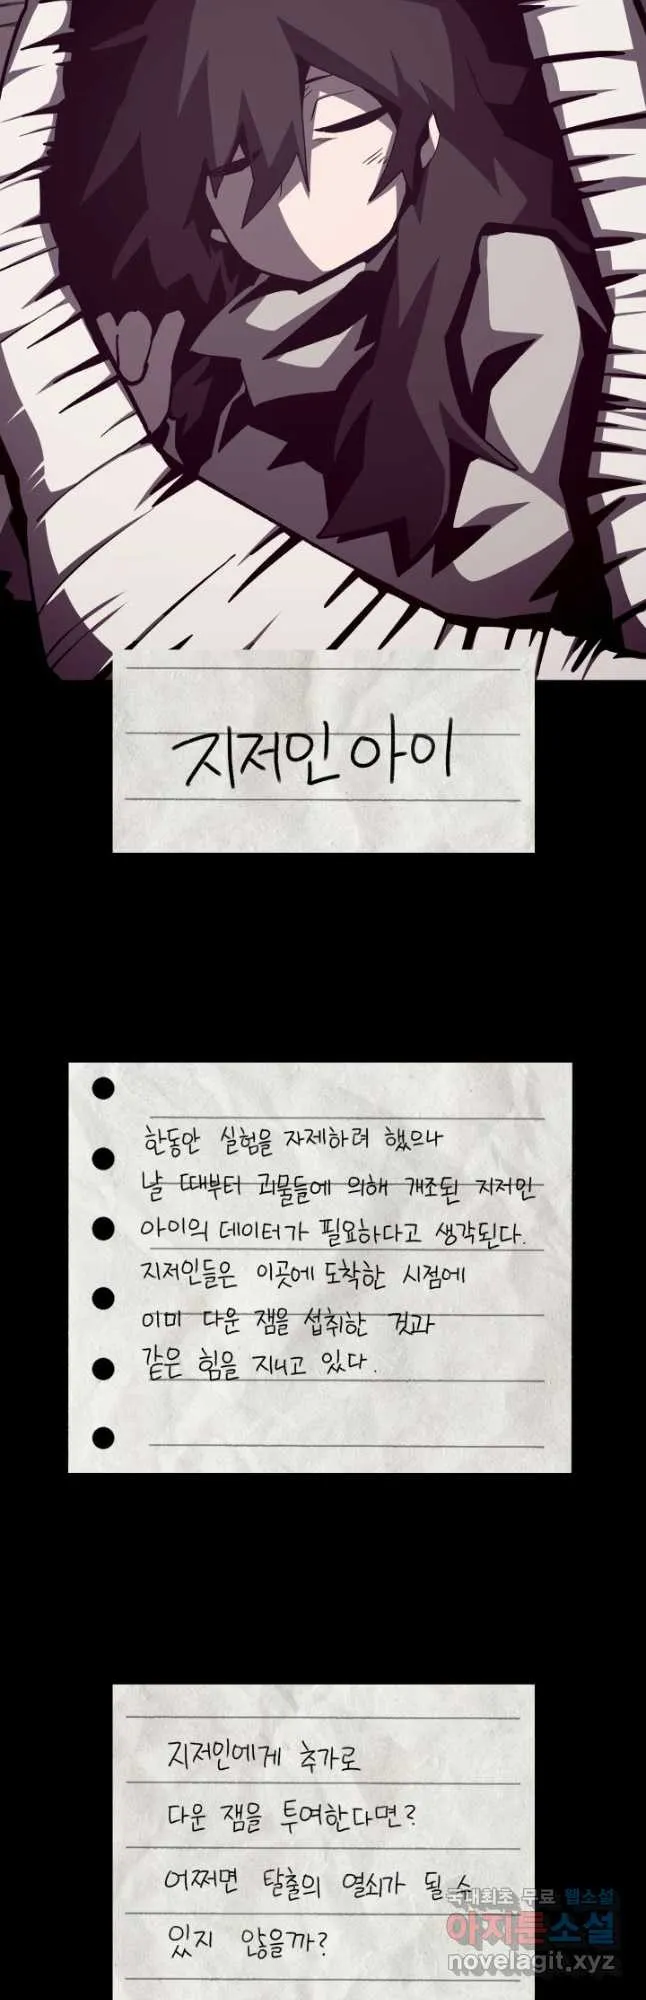 지저인 아이
한동안 실험을 자제하려 했으나
날 때부터 괴물들에 의해 개조된 지저인
아이의 데이터가 필요하다고 생각된다.
지저인들은 이곳에 도착한 시점에
이미 다운 잼을 섭취한 것과
같은 힘을 지니고 있다.
지저인에게 추가로
다운 잼을 투여한다면?
어쩌면 탈출의 열쇠가 될 수
있지 않을까?
국내최초 무료 웹소설
아지툰소설
novelagit.xyz